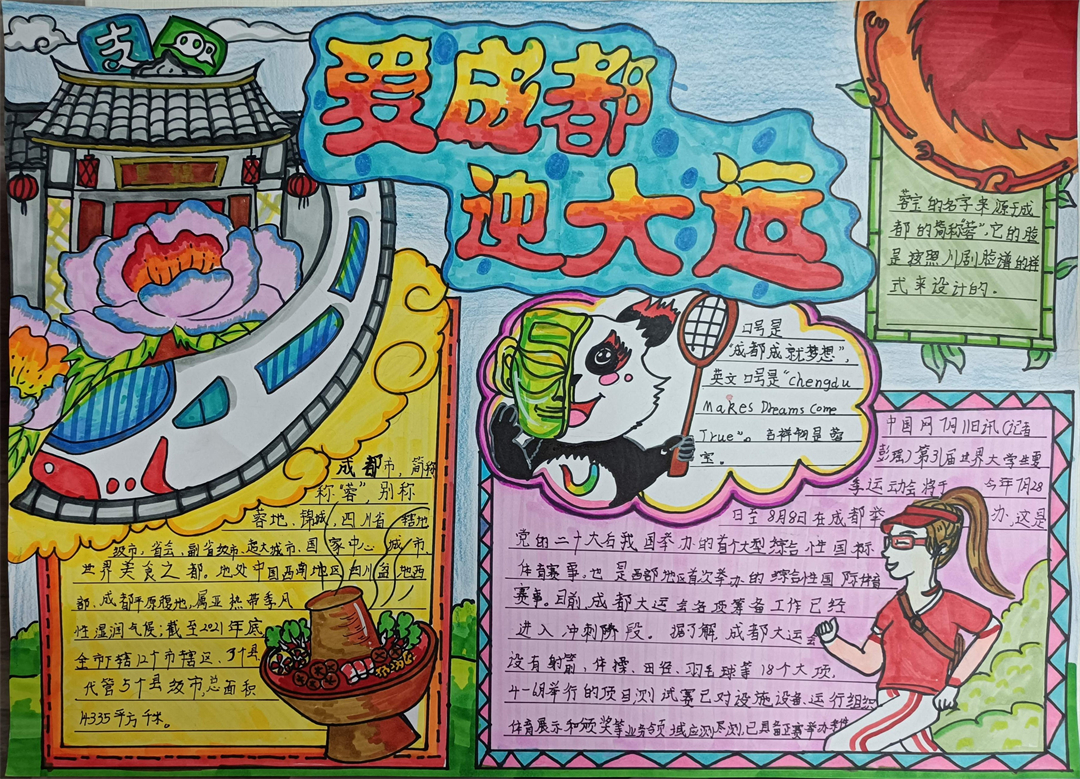 支
爱成都
迎大运
蓉宝的名字来源于成
都的简称"蓉".它的脸
是按照川剧脸谱的样
式来设计的.
口号是
"成都成就梦想",
英文口号是"chengdu
Makes Dreams Come
True"。吉祥物是蓉
宝。
成都市,简称
称"蓉",别称
蓉地、锦城,四川省辖地
级市,省会,副省级市,超大城市、国家中心城市,
世界美食之都。地处中国西南地区四川盆地西
部、成都平原腹地,属亚热带季风
性湿润气候;截至2021年底
全市下辖12个市辖区、3个县
代管5个县级市,总面积
14335平方千米。
中国网7月11日讯(记者
彭瑶)第31届世界大学生夏
季运动会将于 今年7月28
日至8月8日在成都举 办.这是
党的二十大后我国举办的首个大型综合性国际
体育赛事,也是西部地区首次举办的综合性国际体育
赛事。目前,成都大运会各项筹备工作已经
进入冲刺阶段。据了解,成都大运会
设有射箭,体操、田径、羽毛球等18个大项,
4-6月举行的项目测试赛已对设施设备运行组织
体育展示和颁奖等业务领域应测尽测,已具备正赛举办